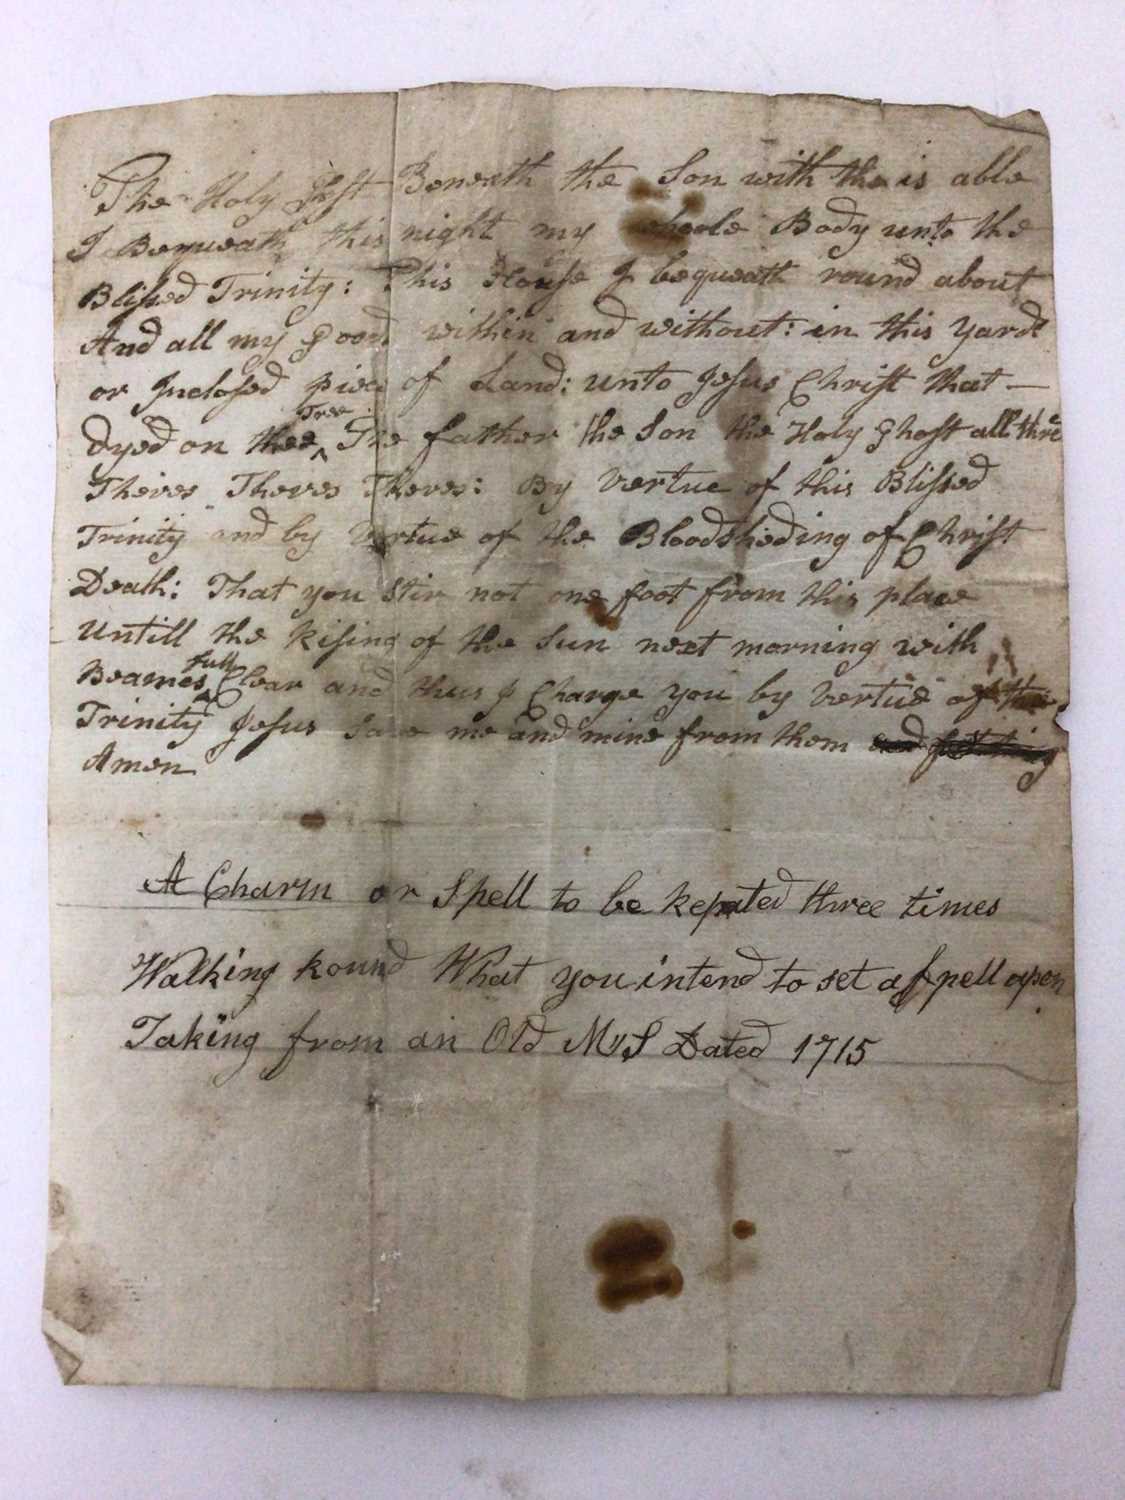 The Holy Gost Beneath the Son with the is able
I Bequeath this night my whoole Body unto the
Blissed Trinity: This House I bequeath round about
And all my Good within and without: in this Yard
or Inclosed piece of Land: unto Jesus Christ that —
Dyed on thee Tree The father the Son the Holy Ghost all thre
Theives Theves Theves: By Vertue of this Blissed
Trinity and by Vertue of the Bloodsheding of Christ
Death: That you Stir not one foot from this place
Untill the Rising of the Sun next morning with
Beames full Clear and thus I Charge you by Vertue of the
Trinity Jesus Save me and mine from them and
Amen
A Charm or Spell to be Repated three times
Walking Round What you intend to set a Spell open
Taking from an Old MuS Dated 1715